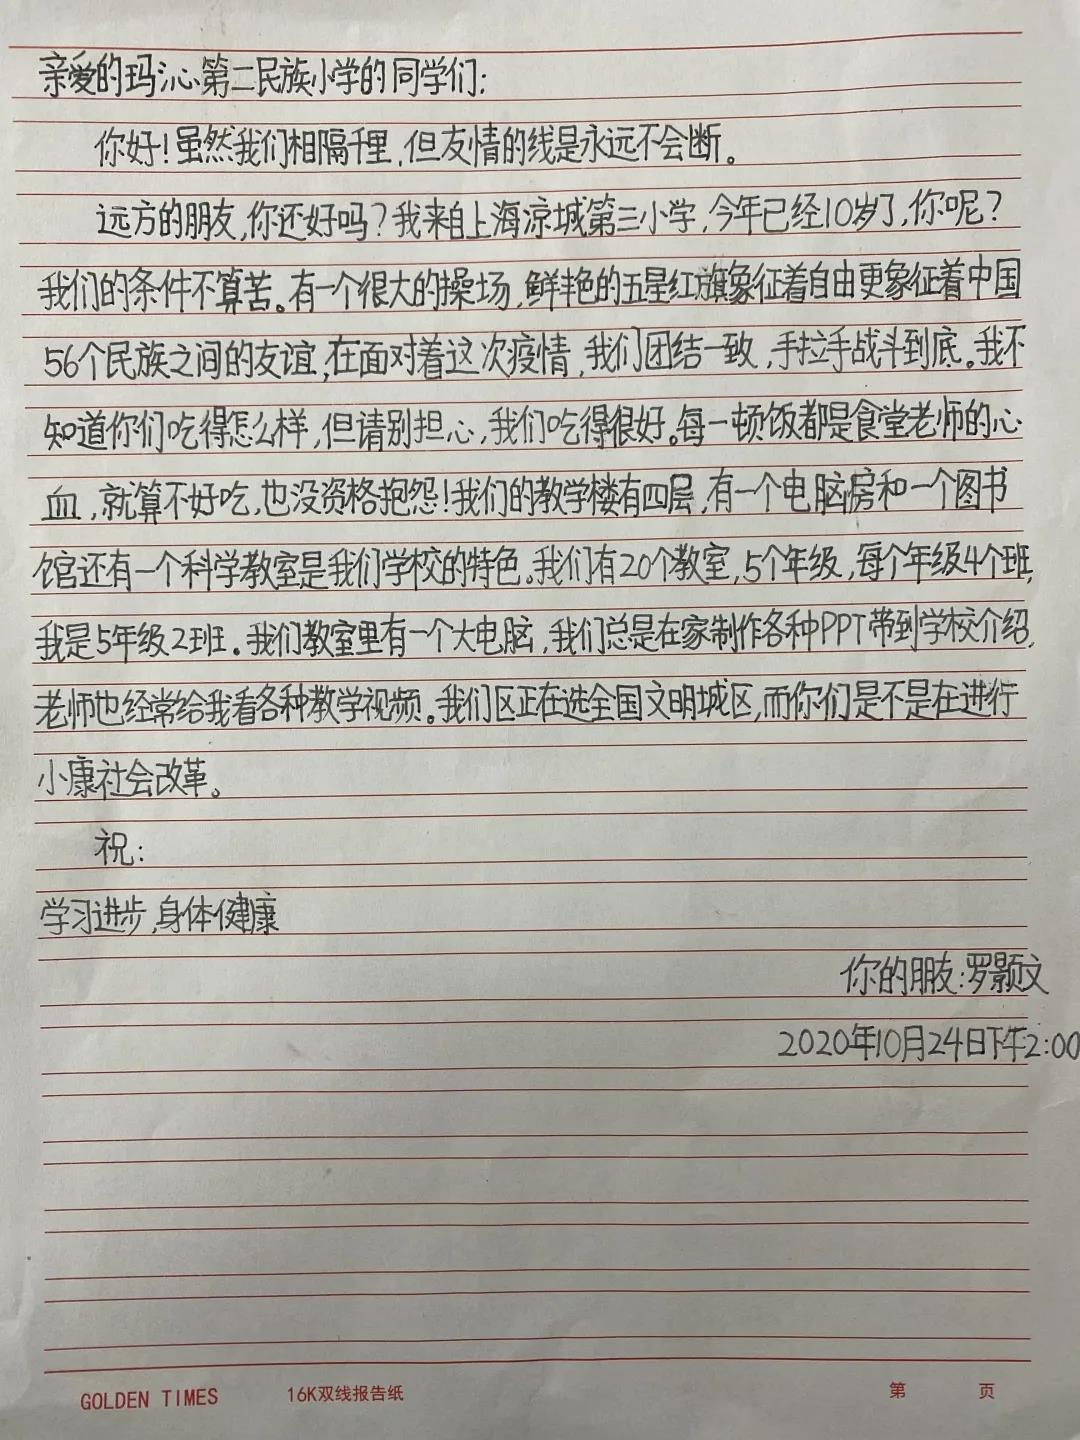 亲爱的玛沁第二民族小学的同学们:
你好!虽然我们相隔千里,但友情的线是永远不会断。
远方的朋友,你还好吗?我来自上海凉城第三小学,今年已经10岁了,你呢?
我们的条件不算苦。有一个很大的操场,鲜艳的五星红旗象征着自由更象征着中国
56个民族之间的友谊,在面对着这次疫情,我们团结一致,手拉手战斗到底。我不
知道你们吃得怎么样,但请别担心,我们吃得很好。每一顿饭都是食堂老师的心
血,就算不好吃,也没资格抱怨!我们的教学楼有四层,有一个电脑房和一个图书
馆还有一个科学教室是我们学校的特色。我们有20个教室,5个年级,每个年级4个班,
我是5年级2班。我们教室里有一个大电脑,我们总是在家制作各种PPT带到学校介绍,
老师也经常给我看各种教学视频。我们区正在选全国文明城区,而你们是不是在进行
小康社会改革。
祝:
学习进步,身体健康
你的朋友:罗颢文
2020年10月24日下午2:00
GOLDEN TIMES 16K双线报告纸 第 页